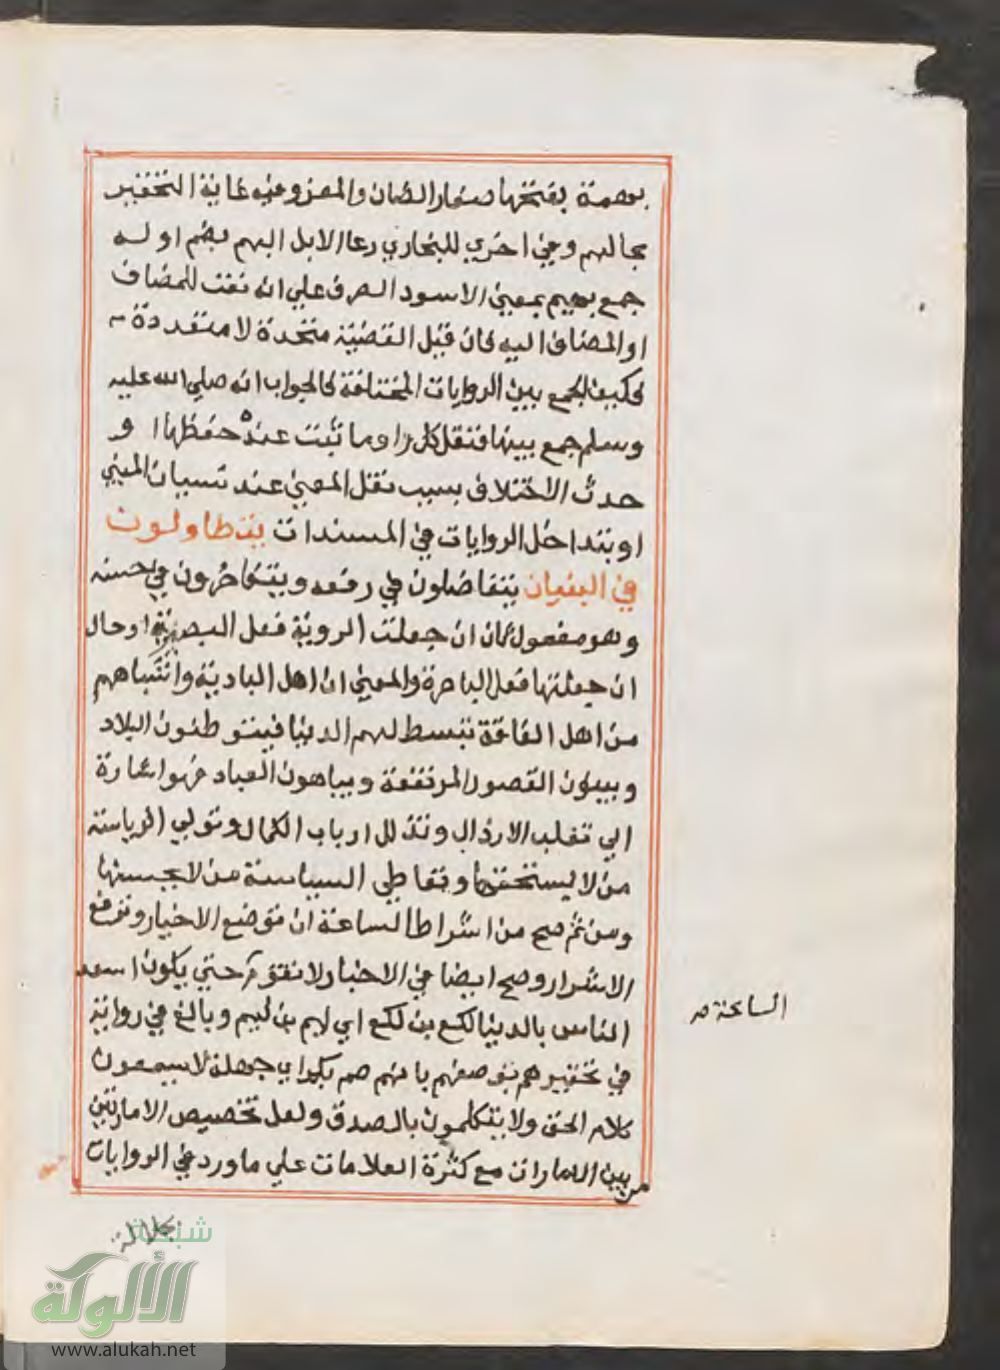 بهمة بفتحها صغار الضان والمعز وفيه غاية التحقير
بحالهم وفي اخري للبخاري رعا الابل البهم بضم اوله
جمع بهيم بمعني الاسود الصرف علي انه نعت للمضاف
او المضاف اليه فان قيل القضية متحدة لا متعددة
فكيف الجمع بين الروايات المختلفة فالجواب انه صلي الله عليه
وسلم جمع بينها فنقل كل راو ما ثبت عنده حفظها او
حدث الاختلاف بسبب نقل المعني عند نسيان المبني
او بتداخل الروايات في المسندات يتطاولون
في البنيان يتفاضلون في رفعه ويتفاخرون في حسنه
وهو مفعول ثان ان جعلت الروية فعل البصيرة او حال
ان جعلتها فعل الباصرة والمعني ان اهل البادية واشباههم
من اهل الفاقة تبسط لهم الدنيا فيتوطنون البلاد
ويبنون القصور المرتفعة ويباهون العباد فهو اشارة
الي تغلب الارذال وتذلل ارباب الكمال وتولي الرياسة
من لا يستحقها وتعاطي السياسة من لا يحسنها
ومن ثم صح من اشراط الساعة ان توضع الاخيار وترفع
الاشرار وصح ايضا في الاخبار لا تقوم حتي يكون اسعد
الساعة صح
الناس بالدنيا لكع بن لكع اي لئيم بن لئيم وبالغ في رواية
في تحقيرهم بوصفهم بانهم صم بكم اي جهلة لا يسمعون
كلام الحق ولا يتكلمون بالصدق ولعل تخصيص الامارتين
من بين الامارات مع كثرة العلامات علي ما ورد في الروايات
شبكة
الألوكة
www.alukah.net